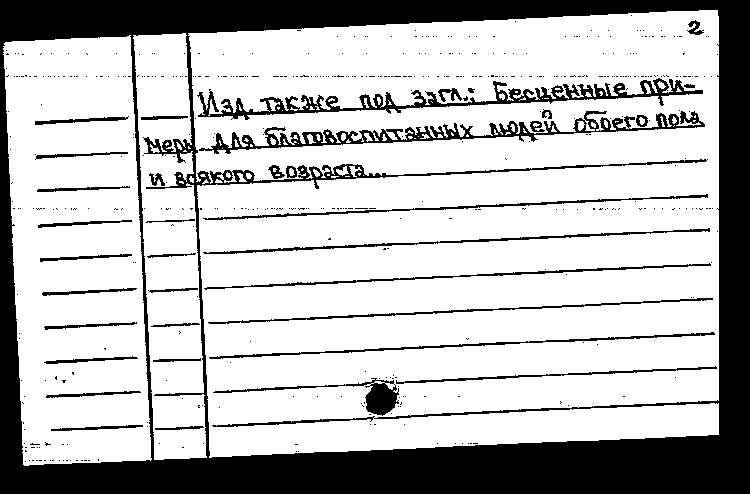 2
Изд. также под загл.: Бесценные при-
меры для благовоспитанных людей обоего пола
и всякого возраста...